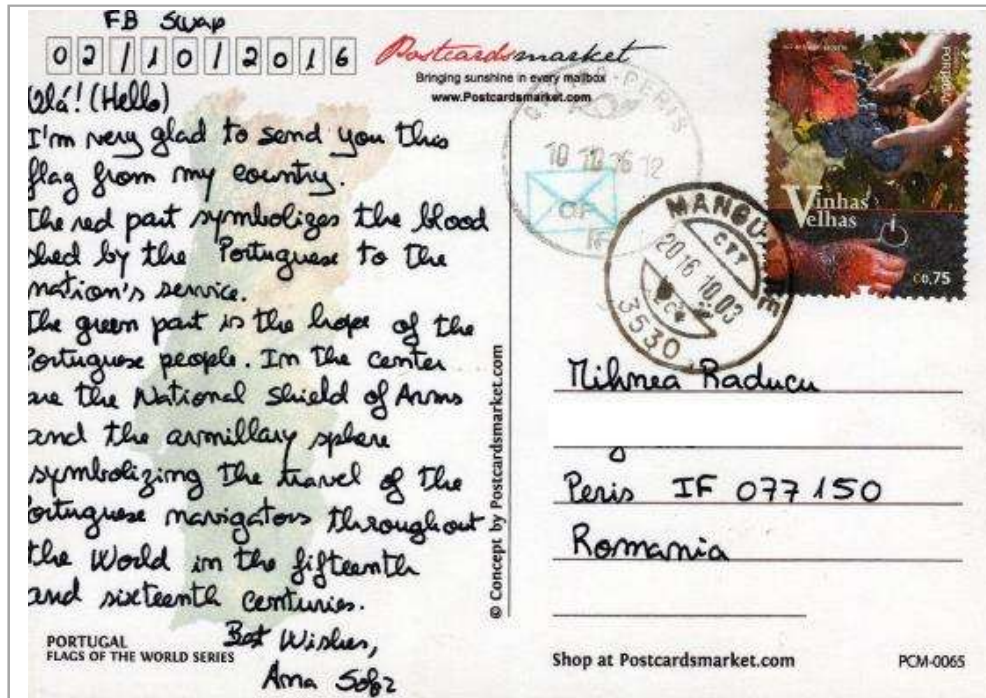 FB Swap
02/10/2016
Postcardsmarket
Bringing sunshine in every mailbox
www.Postcardsmarket.com
Olá! (Hello)
I'm very glad to send you this
flag from my country.
The red part symbolizes the blood
shed by the Portuguese to the
nation's service.
The green part is the hope of the
Portuguese people. In the center
are the National Shield of Arms
and the armillary sphere
symbolizing the travel of the
Portuguese navigators throughout
the World in the fifteenth
and sixteenth centuries.
Best Wishes,
Ana
PORTUGAL
FLAGS OF THE WORLD SERIES
© Concept by Postcardsmarket.com
PERIS
10 10 16 12
OF
CTT
2016 10 03
3530
PORTUGAL
Vinhas
Velhas
€0,75
Mihnea Raducu
Peris IF 077150
Romania
Shop at Postcardsmarket.com
PCM-0065